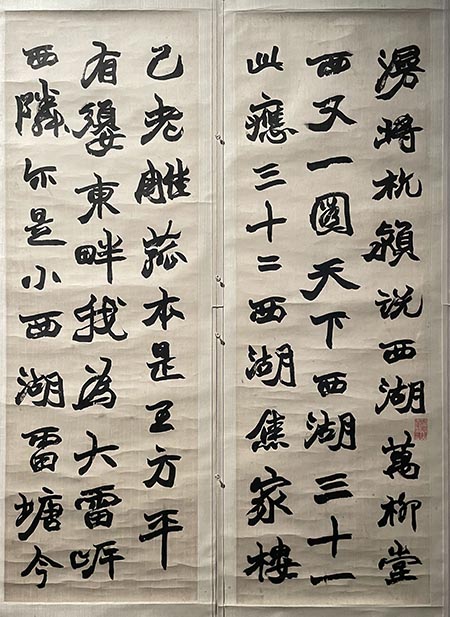 漫將杭潁説西湖萬柳堂
西又一圖天下西湖三十一
此應三十二西湖焦家樓
己老雕菰本是王方平
有東畔我為大雷岍
西隣尓是小西湖雷塘今